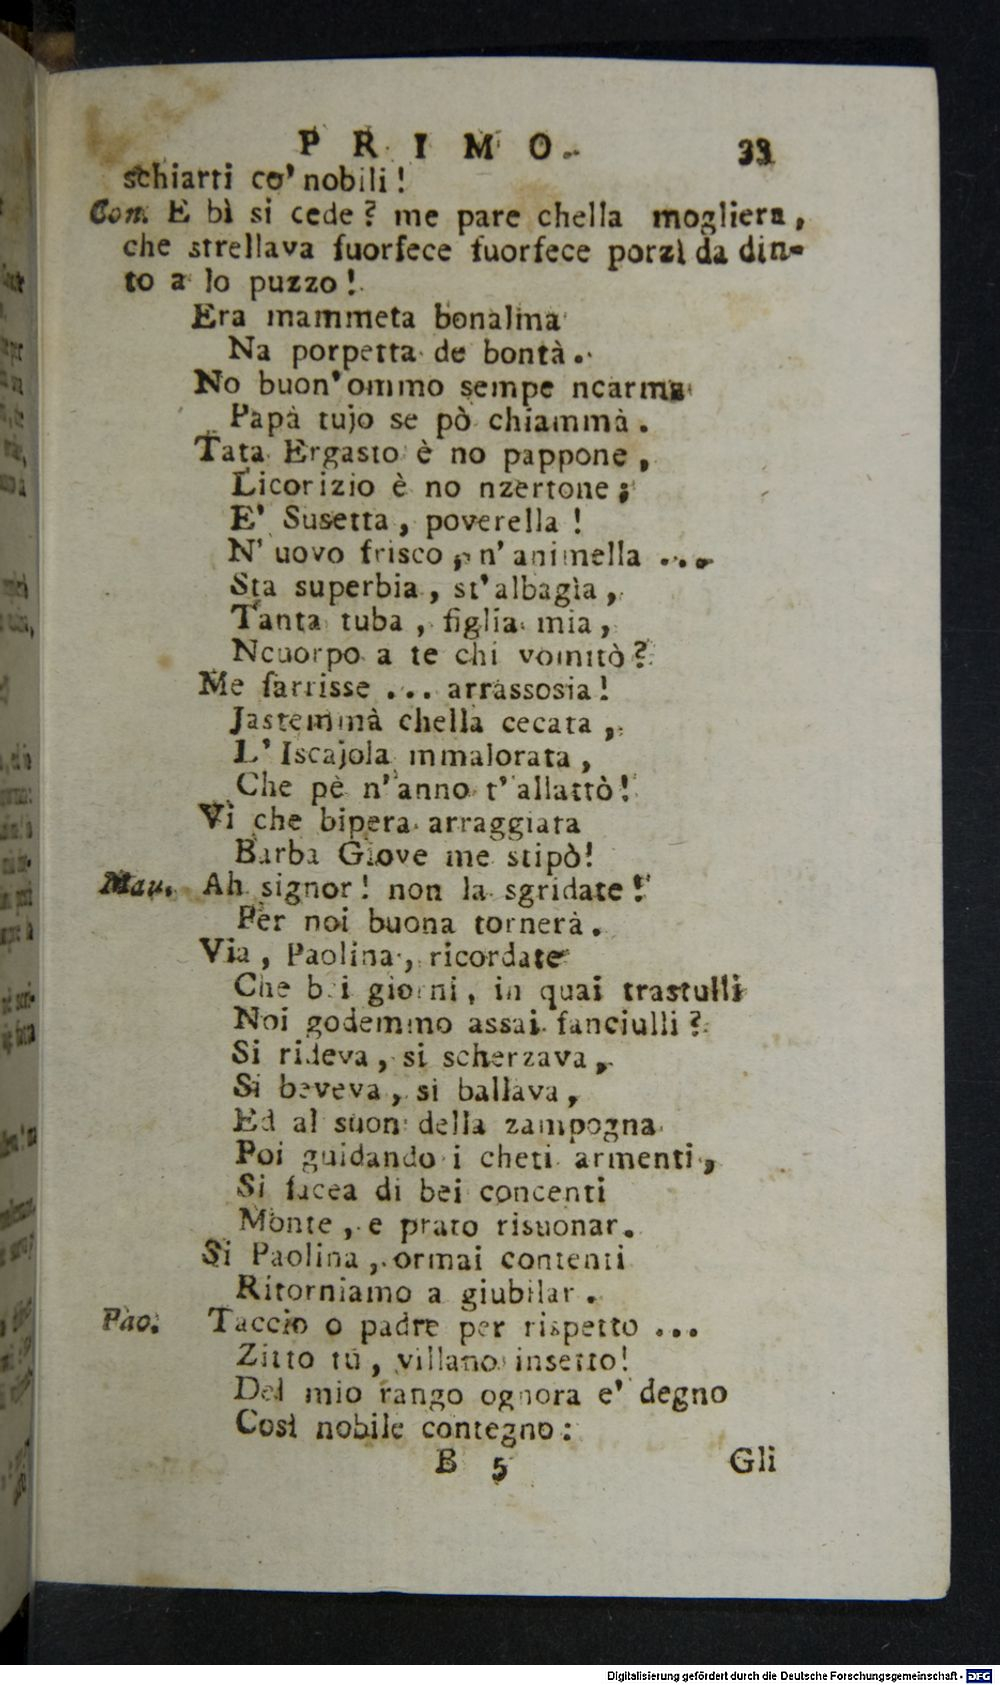 PRIMO. 33
schiarti co' nobili!
Con. E bì si cede? me pare chella mogliera,
che strellava fuorfece fuorfece porzì da din-
to a lo puzzo!
Era mammeta bonalma
Na porpetta de bontà.
No buon'ommo sempe ncarma
Papà tujo se pò chiammà.
Tata Ergasto è no pappone,
Licorizio è no nzertone;
E' Susetta, poverella!
N' uovo frisco, n' animella ....
Sta superbia, st'albagìa,
Tanta tuba, figlia mia,
Ncuorpo a te chi vomitò?
Me farrisse ... arrassosia!
Jastemmà chella cecata,
L' Iscajola mmalorata,
Che pè n'anno t'allattò!
Vì che bipera arraggiata
Barba Giove me stipò!
Mau. Ah signor! non la sgridate!
Per noi buona tornerà.
Via, Paolina, ricordate
Che bei giorni, in quai trastulli
Noi godemmo assai fanciulli?
Si rideva, si scherzava,
Si beveva, si ballava,
Ed al suon della zampogna
Poi guidando i cheti armenti,
Si facea di bei concenti
Monte, e prato risuonar.
Si Paolina, ormai contenti
Ritorniamo a giubilar.
Pao. Taccio o padre per rispetto ...
Zitto tu, villano insetto!
Del mio rango ognora e' degno
Così nobile contegno:
B 5 Gli
Digitalisierung gefördert durch die Deutsche Forschungsgemeinschaft - DFG